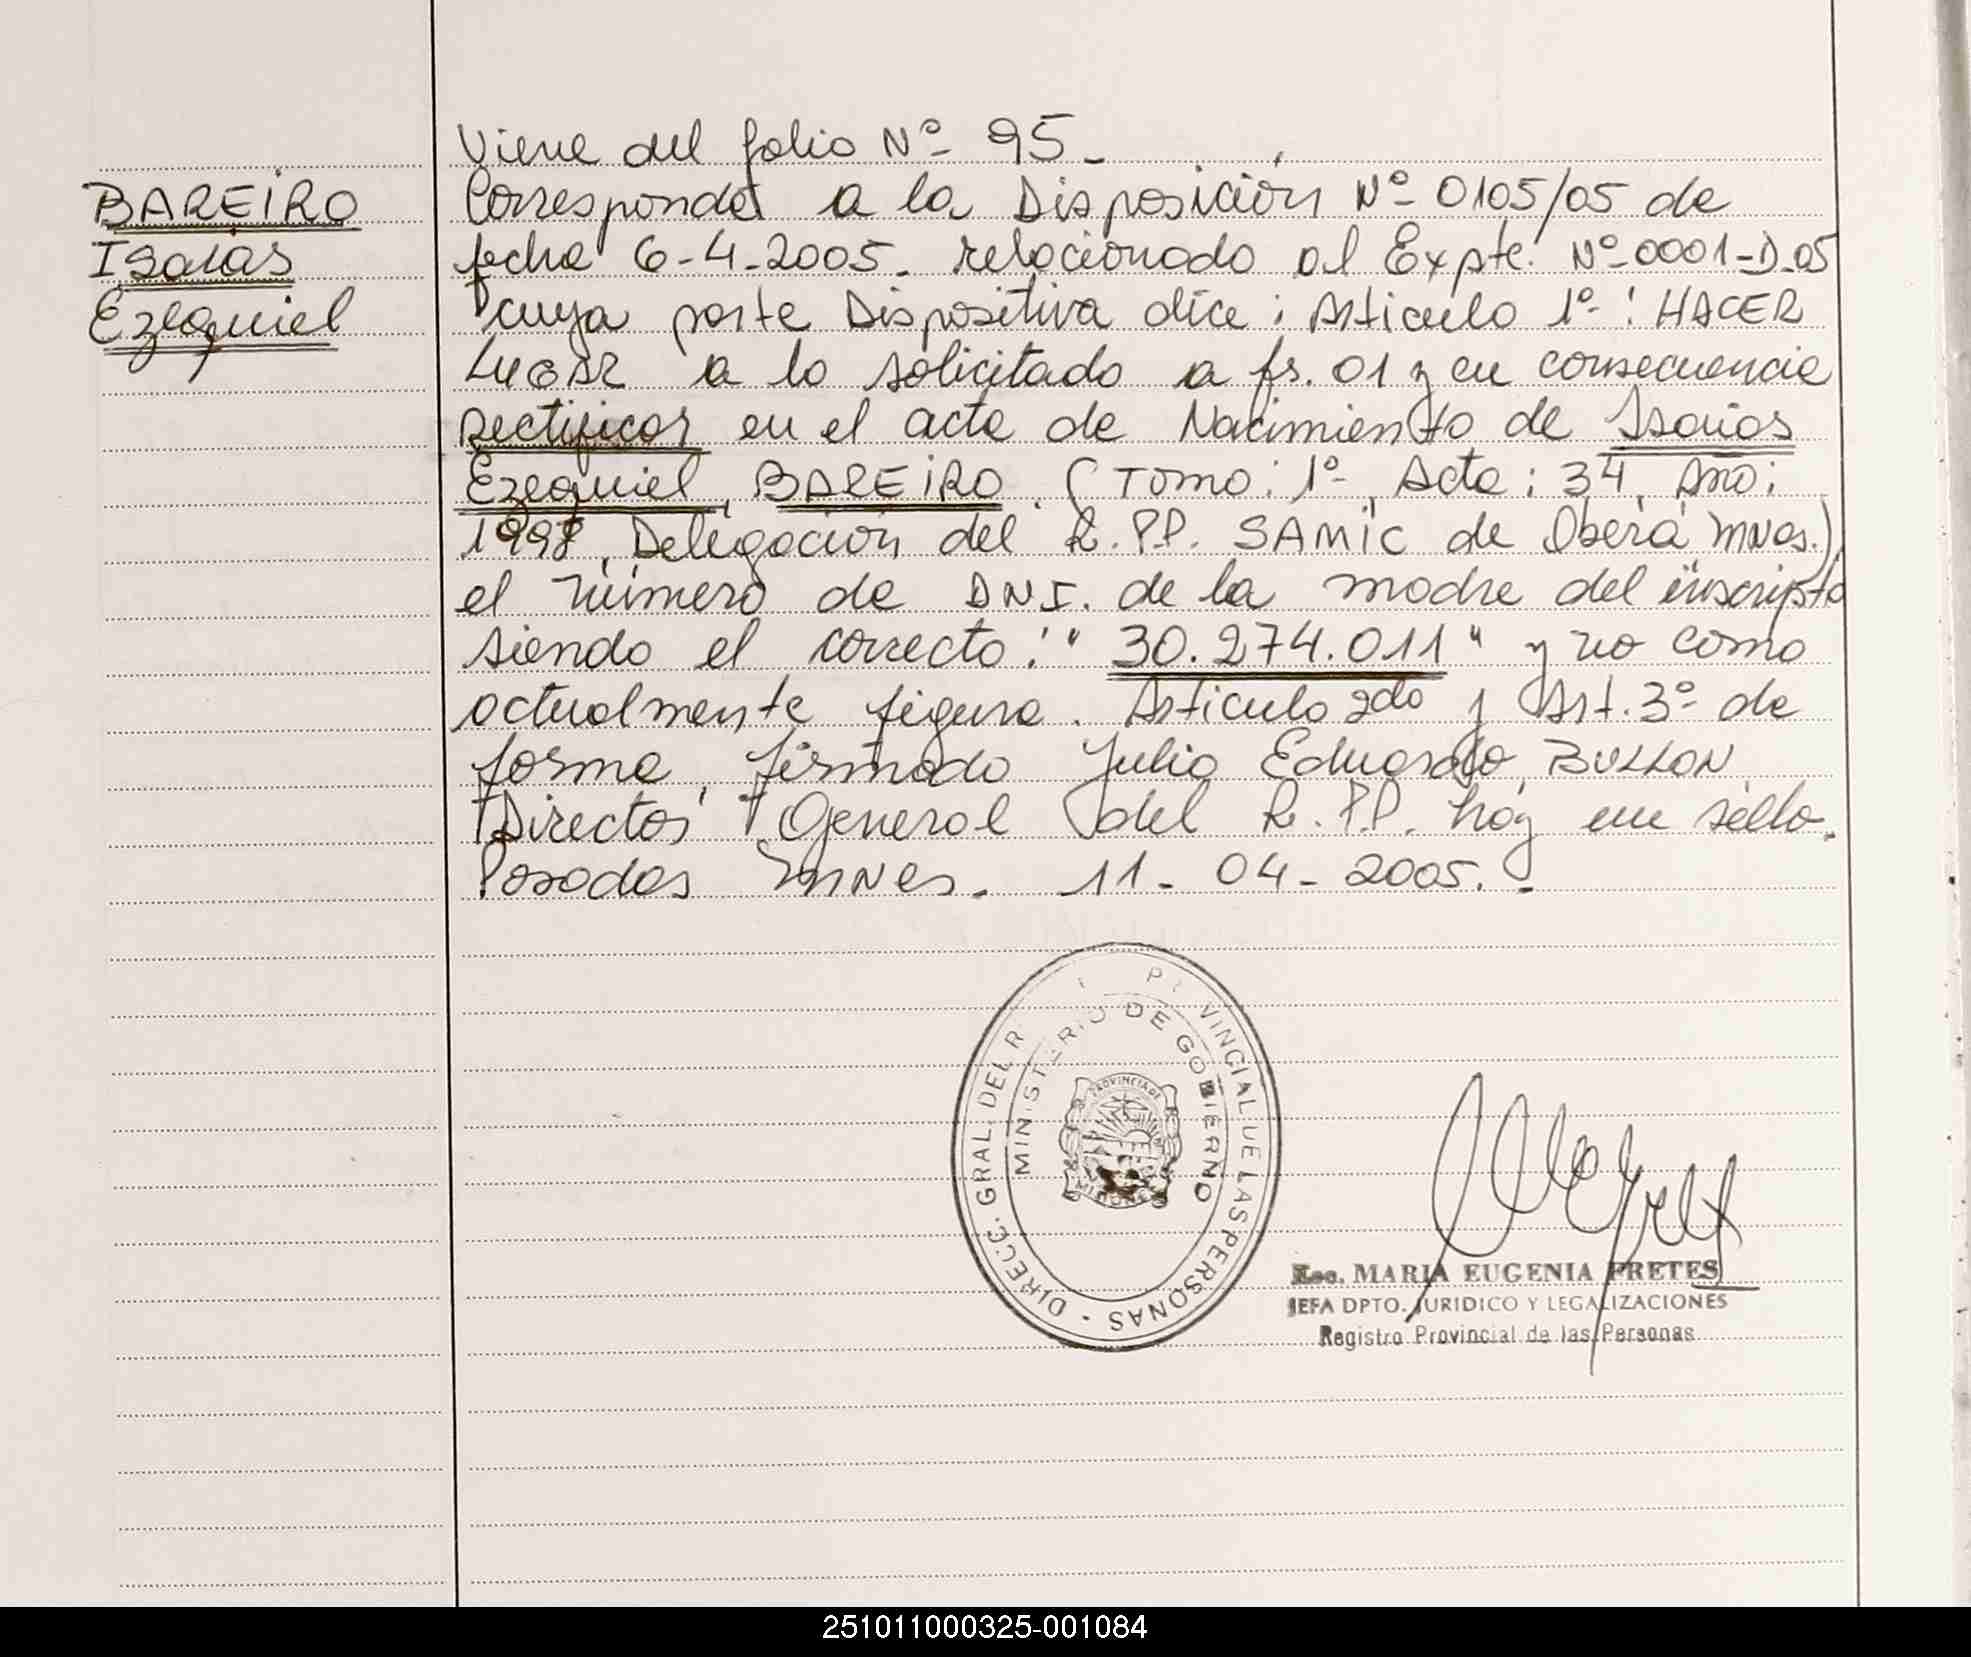 Viene del folio Nº 95_
BAREIRO
Isaias
Ezequiel
Corresponde a la Disposición Nº 0105/05 de
fecha 6-4-2005_ relacionado al Expte. Nº 0001-D-05
cuya parte Dispositiva dice: Articulo 1º: HACER
LUGAR a lo solicitado a fs. 01 y en consecuencia
Rectificar en el acta de Nacimiento de Isaias
Ezequiel, BAREIRO. (Tomo: 1º, Acta: 34, Año:
1998, Delegación del R.P.P. SAMIC de Oberá Mnes.),
el número de DNI. de la madre del inscripto
siendo el correcto: "30.274.011" y no como
actualmente figura. Articulo 2do y Art. 3º de
forma, firmado Julio Eduardo, BULLON,
Director General del R.P.P. hay un sello.
Posadas Mnes. 11-04-2005._
DIRECC. GRAL. DEL R PROVINCIAL DE LAS PERSONAS -
MINISTERIO DE GOBIERNO
PROVINCIA DE
MISIONES
Esc. MARIA EUGENIA FRETES
JEFA DPTO. JURIDICO Y LEGALIZACIONES
Registro Provincial de las Personas
251011000325-001084